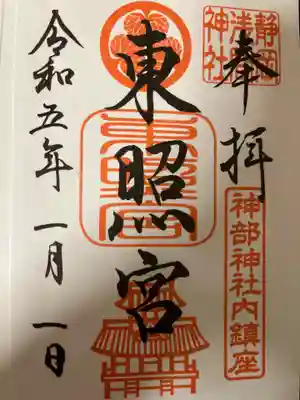 奉拝
静岡浅間神社
神部神社内鎮座
東照宮
東照宮
令和五年一月一日